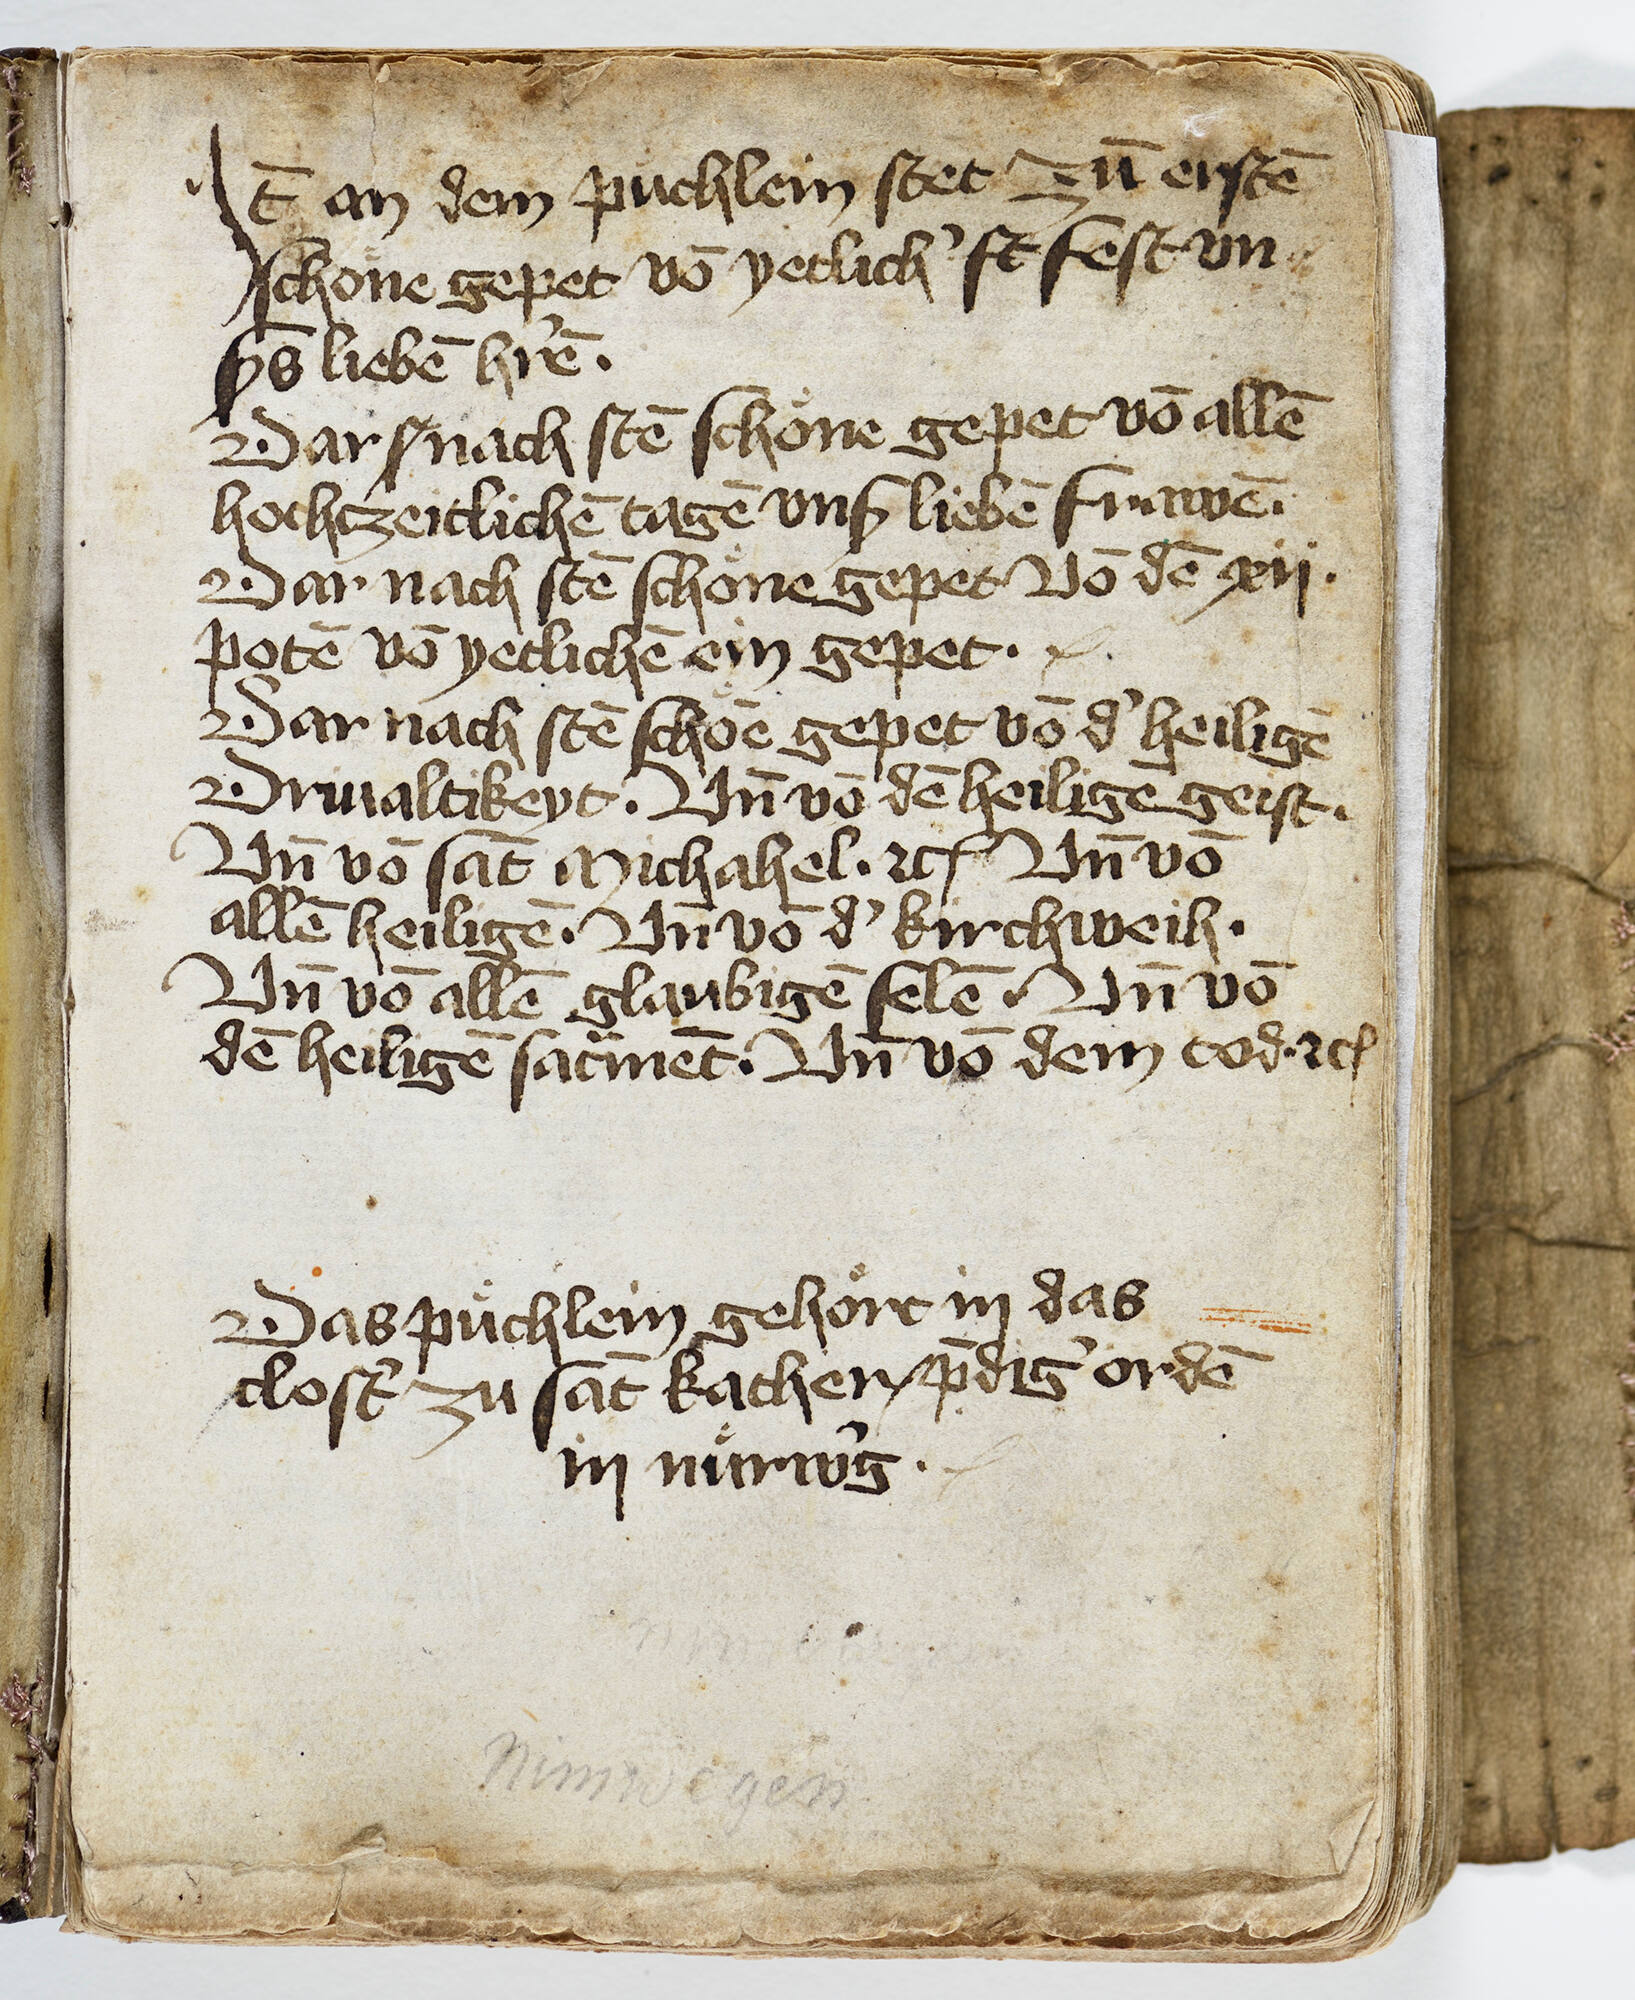 It̄ an dem puchlein stet zū erstē
schöne gepet vō yetlich' st fest vn
sers liebē hr̄ē.
Dar nach stē schöne gepet vō allē
hochtzeitlichē tagē vnß liebē frawē.
Dar nach stē schöne gepet Vō dē xij.
potē vō yetlichē ein gepet.
Dar nach stē schöē gepet vō d' heiligē
Driualtikeyt. Vn̄ vō dē heiligē geist.
Vn̄ vō sāt Michahel. ꝛc Vn̄ vō
allē heiligē. Vn̄ vō d' kirchweih.
Vn̄ vō allē glaubigē selē. Vn̄ vō
dē heiligē sac̄mēt. Vn̄ vō dem tod. ꝛc
Das püchlein gehört in das
clost' zu sāt kather p̄dig' ordē
in nürm̄g.
Nimwegen